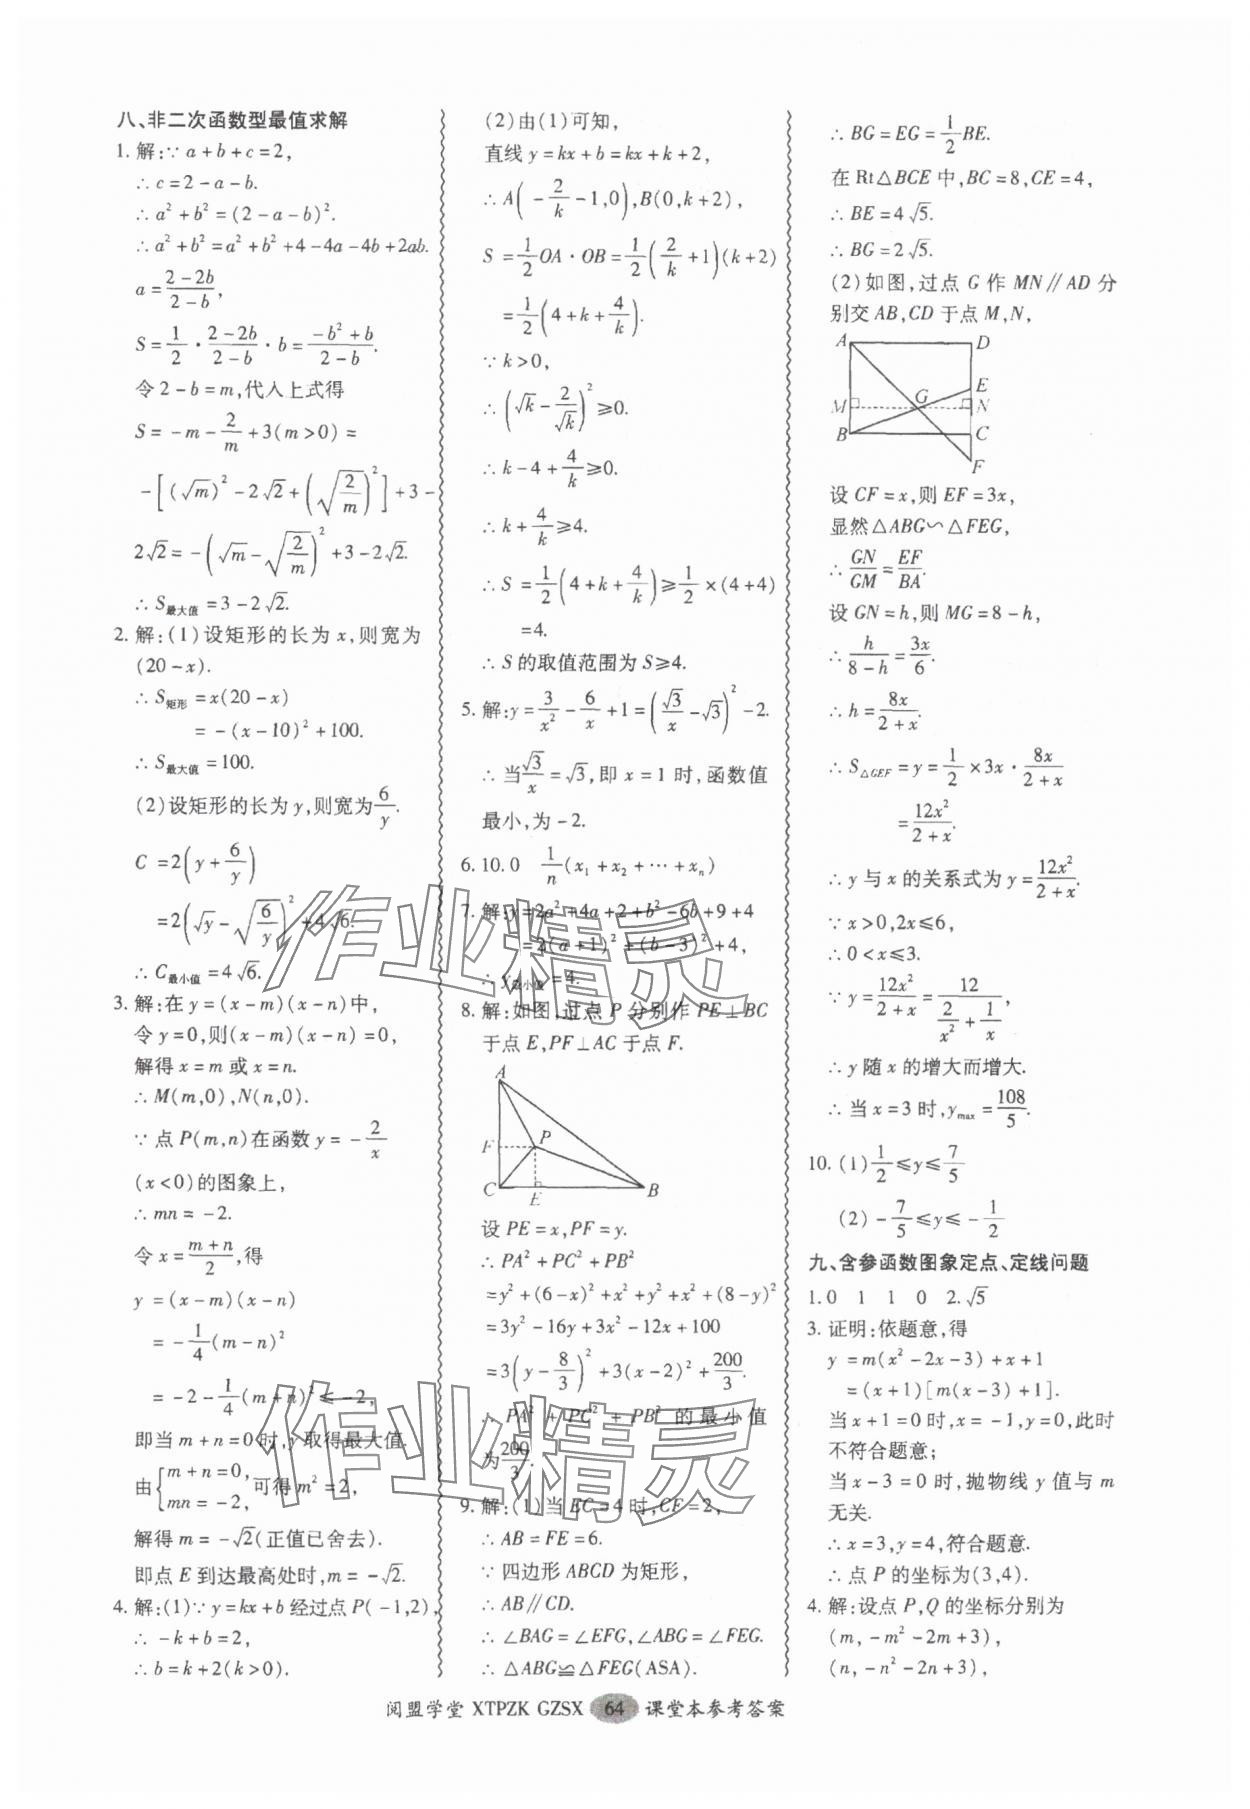 八、非二次函数型最值求解
1. 解:∵a+b+c=2,
∴c=2-a-b.
∴a²+b²=(2-a-b)².
∴a²+b²=a²+b²+4-4a-4b+2ab.
a=\frac{2-2b}{2-b},
S=\frac{1}{2}·\frac{2-2b}{2-b}·b=\frac{-b²+b}{2-b}.
令2-b=m,代入上式得
S=-m-\frac{2}{m}+3(m>0)=
-[(√m)²-2√2+(√\frac{2}{m})²]+3-
2√2=-(√m-√\frac{2}{m})²+3-2√2.
∴S最大值=3-2√2.
2. 解:(1)设矩形的长为x,则宽为
(20-x).
∴S矩形=x(20-x)
=-(x-10)²+100.
∴S最大值=100.
(2)设矩形的长为y,则宽为\frac{6}{y}.
C=2(y+\frac{6}{y})
=2(√y-√\frac{6}{y})²+4√6.
∴C最小值=4√6.
3. 解:在y=(x-m)(x-n)中,
令y=0,则(x-m)(x-n)=0,
解得x=m或x=n.
∴M(m,0),N(n,0).
∵点P(m,n)在函数y=-\frac{2}{x}
(x<0)的图象上,
∴mn=-2.
令x=\frac{m+n}{2},得
y=(x-m)(x-n)
=-\frac{1}{4}(m-n)²
=-2-\frac{1}{4}(m+n)²≤-2,
即当m+n=0时,y取得最大值.
由{m+n=0, mn=-2,可得m²=2,
解得m=-√2(正值已舍去).
即点E到达最高处时,m=-√2.
4. 解:(1)∵y=kx+b经过点P(-1,2),
∴-k+b=2,
∴b=k+2(k>0).
(2)由(1)可知,
直线y=kx+b=kx+k+2,
∴A(-\frac{2}{k}-1,0),B(0,k+2),
S=\frac{1}{2}OA·OB=\frac{1}{2}(\frac{2}{k}+1)(k+2)
=\frac{1}{2}(4+k+\frac{4}{k}).
∵k>0,
∴(√k-\frac{2}{√k})²≥0.
∴k-4+\frac{4}{k}≥0.
∴k+\frac{4}{k}≥4.
∴S=\frac{1}{2}(4+k+\frac{4}{k})≥\frac{1}{2}×(4+4)
=4.
∴S的取值范围为S≥4.
5. 解:y=\frac{3}{x²}-\frac{6}{x}+1=(\frac{√3}{x}-√3)²-2.
∴当\frac{√3}{x}=√3,即x=1时,函数值
最小,为-2.
6. 10.0 \frac{1}{n}(x₁+x₂+⋯+xₙ)
7. 解:y=2a²+4a+2+b²-6b+9+4
=2(a+1)²+(b-3)²+4,
∴y最小值=4.
8. 解:如图,过点P分别作PE⊥BC
于点E,PF⊥AC于点F.
A
F P
C E B
设PE=x,PF=y.
∴PA²+PC²+PB²
=y²+(6-x)²+x²+y²+x²+(8-y)²
=3y²-16y+3x²-12x+100
=3(y-\frac{8}{3})²+3(x-2)²+\frac{200}{3}.
∴PA²+PC²+PB²的最小值
为\frac{200}{3}.
9. 解:(1)当EC=4时,CF=2,
∴AB=FE=6.
∵四边形ABCD为矩形,
∴AB∥CD.
∴∠BAG=∠EFG,∠ABG=∠FEG.
∴△ABG≌△FEG(ASA).
∴BG=EG=\frac{1}{2}BE.
在Rt△BCE中,BC=8,CE=4,
∴BE=4√5.
∴BG=2√5.
(2)如图,过点G作MN∥AD分
别交AB,CD于点M,N,
A D
E
M G N
B C
F
设CF=x,则EF=3x,
显然△ABG∽△FEG,
∴\frac{GN}{GM}=\frac{EF}{BA}.
设GN=h,则MG=8-h,
∴\frac{h}{8-h}=\frac{3x}{6}.
∴h=\frac{8x}{2+x}.
∴S△GEF=y=\frac{1}{2}×3x·\frac{8x}{2+x}
=\frac{12x²}{2+x}.
∴y与x的关系式为y=\frac{12x²}{2+x}.
∵x>0,2x≤6,
∴0<x≤3.
∵y=\frac{12x²}{2+x}=\frac{12}{\frac{2}{x²}+\frac{1}{x}},
∴y随x的增大而增大.
∴当x=3时,ymax=\frac{108}{5}.
10. (1)\frac{1}{2}≤y≤\frac{7}{5}
(2)-\frac{7}{5}≤y≤-\frac{1}{2}
九、含参函数图象定点、定线问题
1. 0 1 1 0 2. √5
3. 证明:依题意,得
y=m(x²-2x-3)+x+1
=(x+1)[m(x-3)+1].
当x+1=0时,x=-1,y=0,此时
不符合题意;
当x-3=0时,抛物线y值与m
无关.
∴x=3,y=4,符合题意.
∴点P的坐标为(3,4).
4. 解:设点P,Q的坐标分别为
(m,-m²-2m+3),
(n,-n²-2n+3),
阅盟学堂 XTPZK GZSX 64 课堂本参考答案
作业精灵
作业精灵